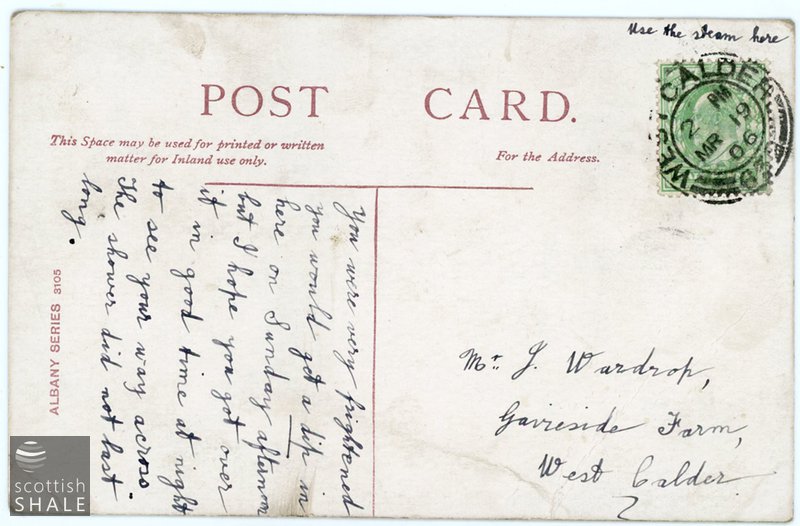 Use the steam here
POST CARD.
This Space may be used for printed or written
matter for Inland use only.
For the Address.
WEST CALDER
2 PM
MR 19
06
You were very frightened
you would get a dip in
here on Sunday afternoon
but I hope you got over
it in good time at night
to see your way across.
The shower did not last
long.
Mr. J. Wardrop,
Gavieside Farm,
West Calder
ALBANY SERIES 3105
scottish
SHALE